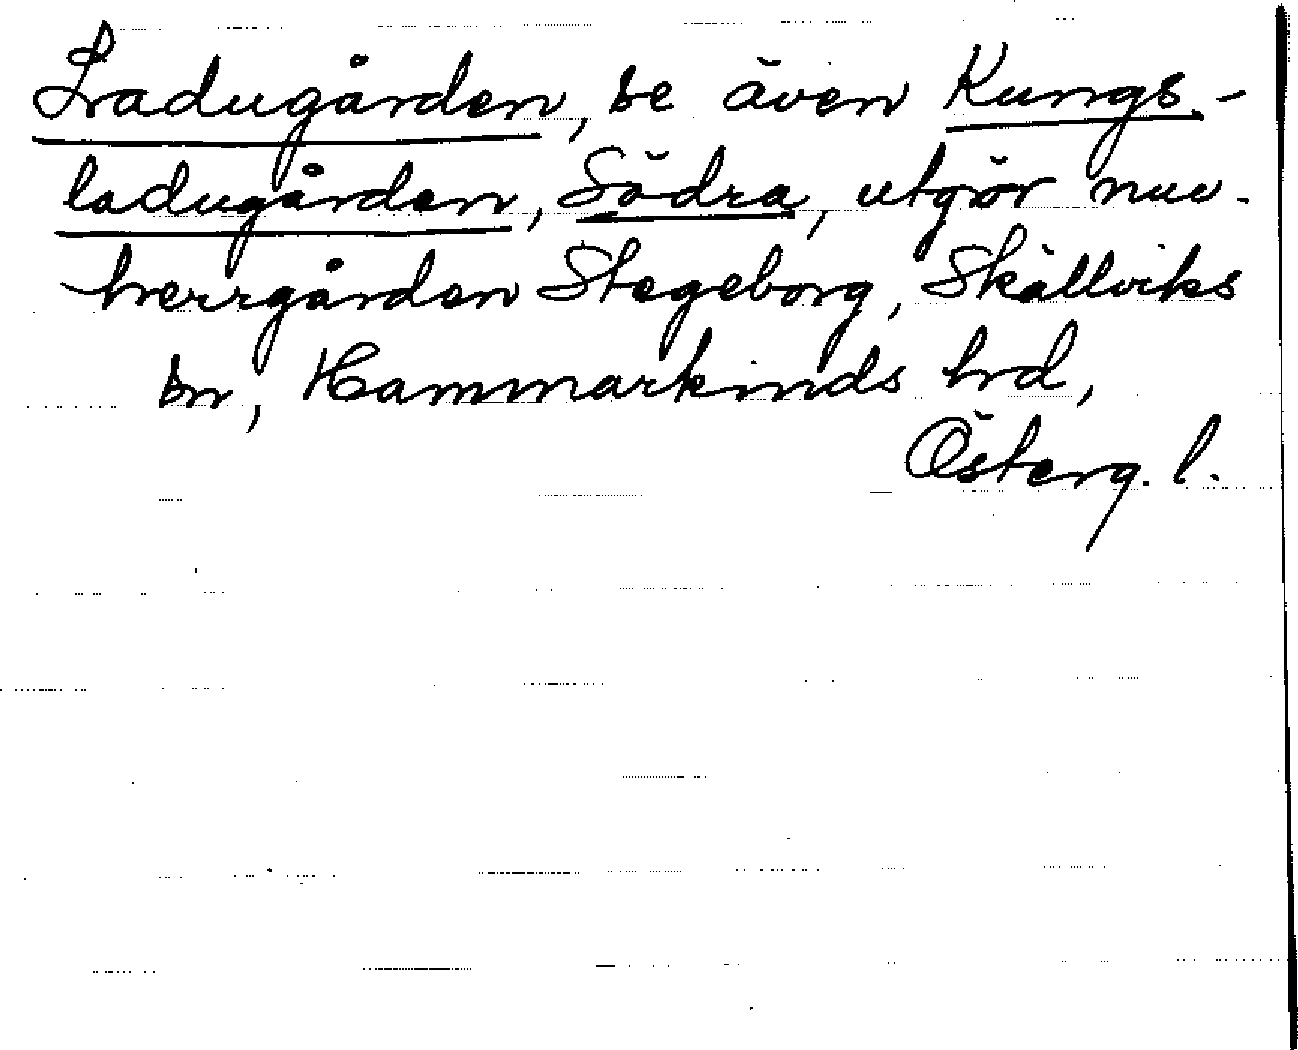 Ladugården, se även Kungs-
ladugården, Södra, utgör nuv.
herrgården Stegeborg, Skällviks
sn, Hammarkinds hrd,
Österg. l.